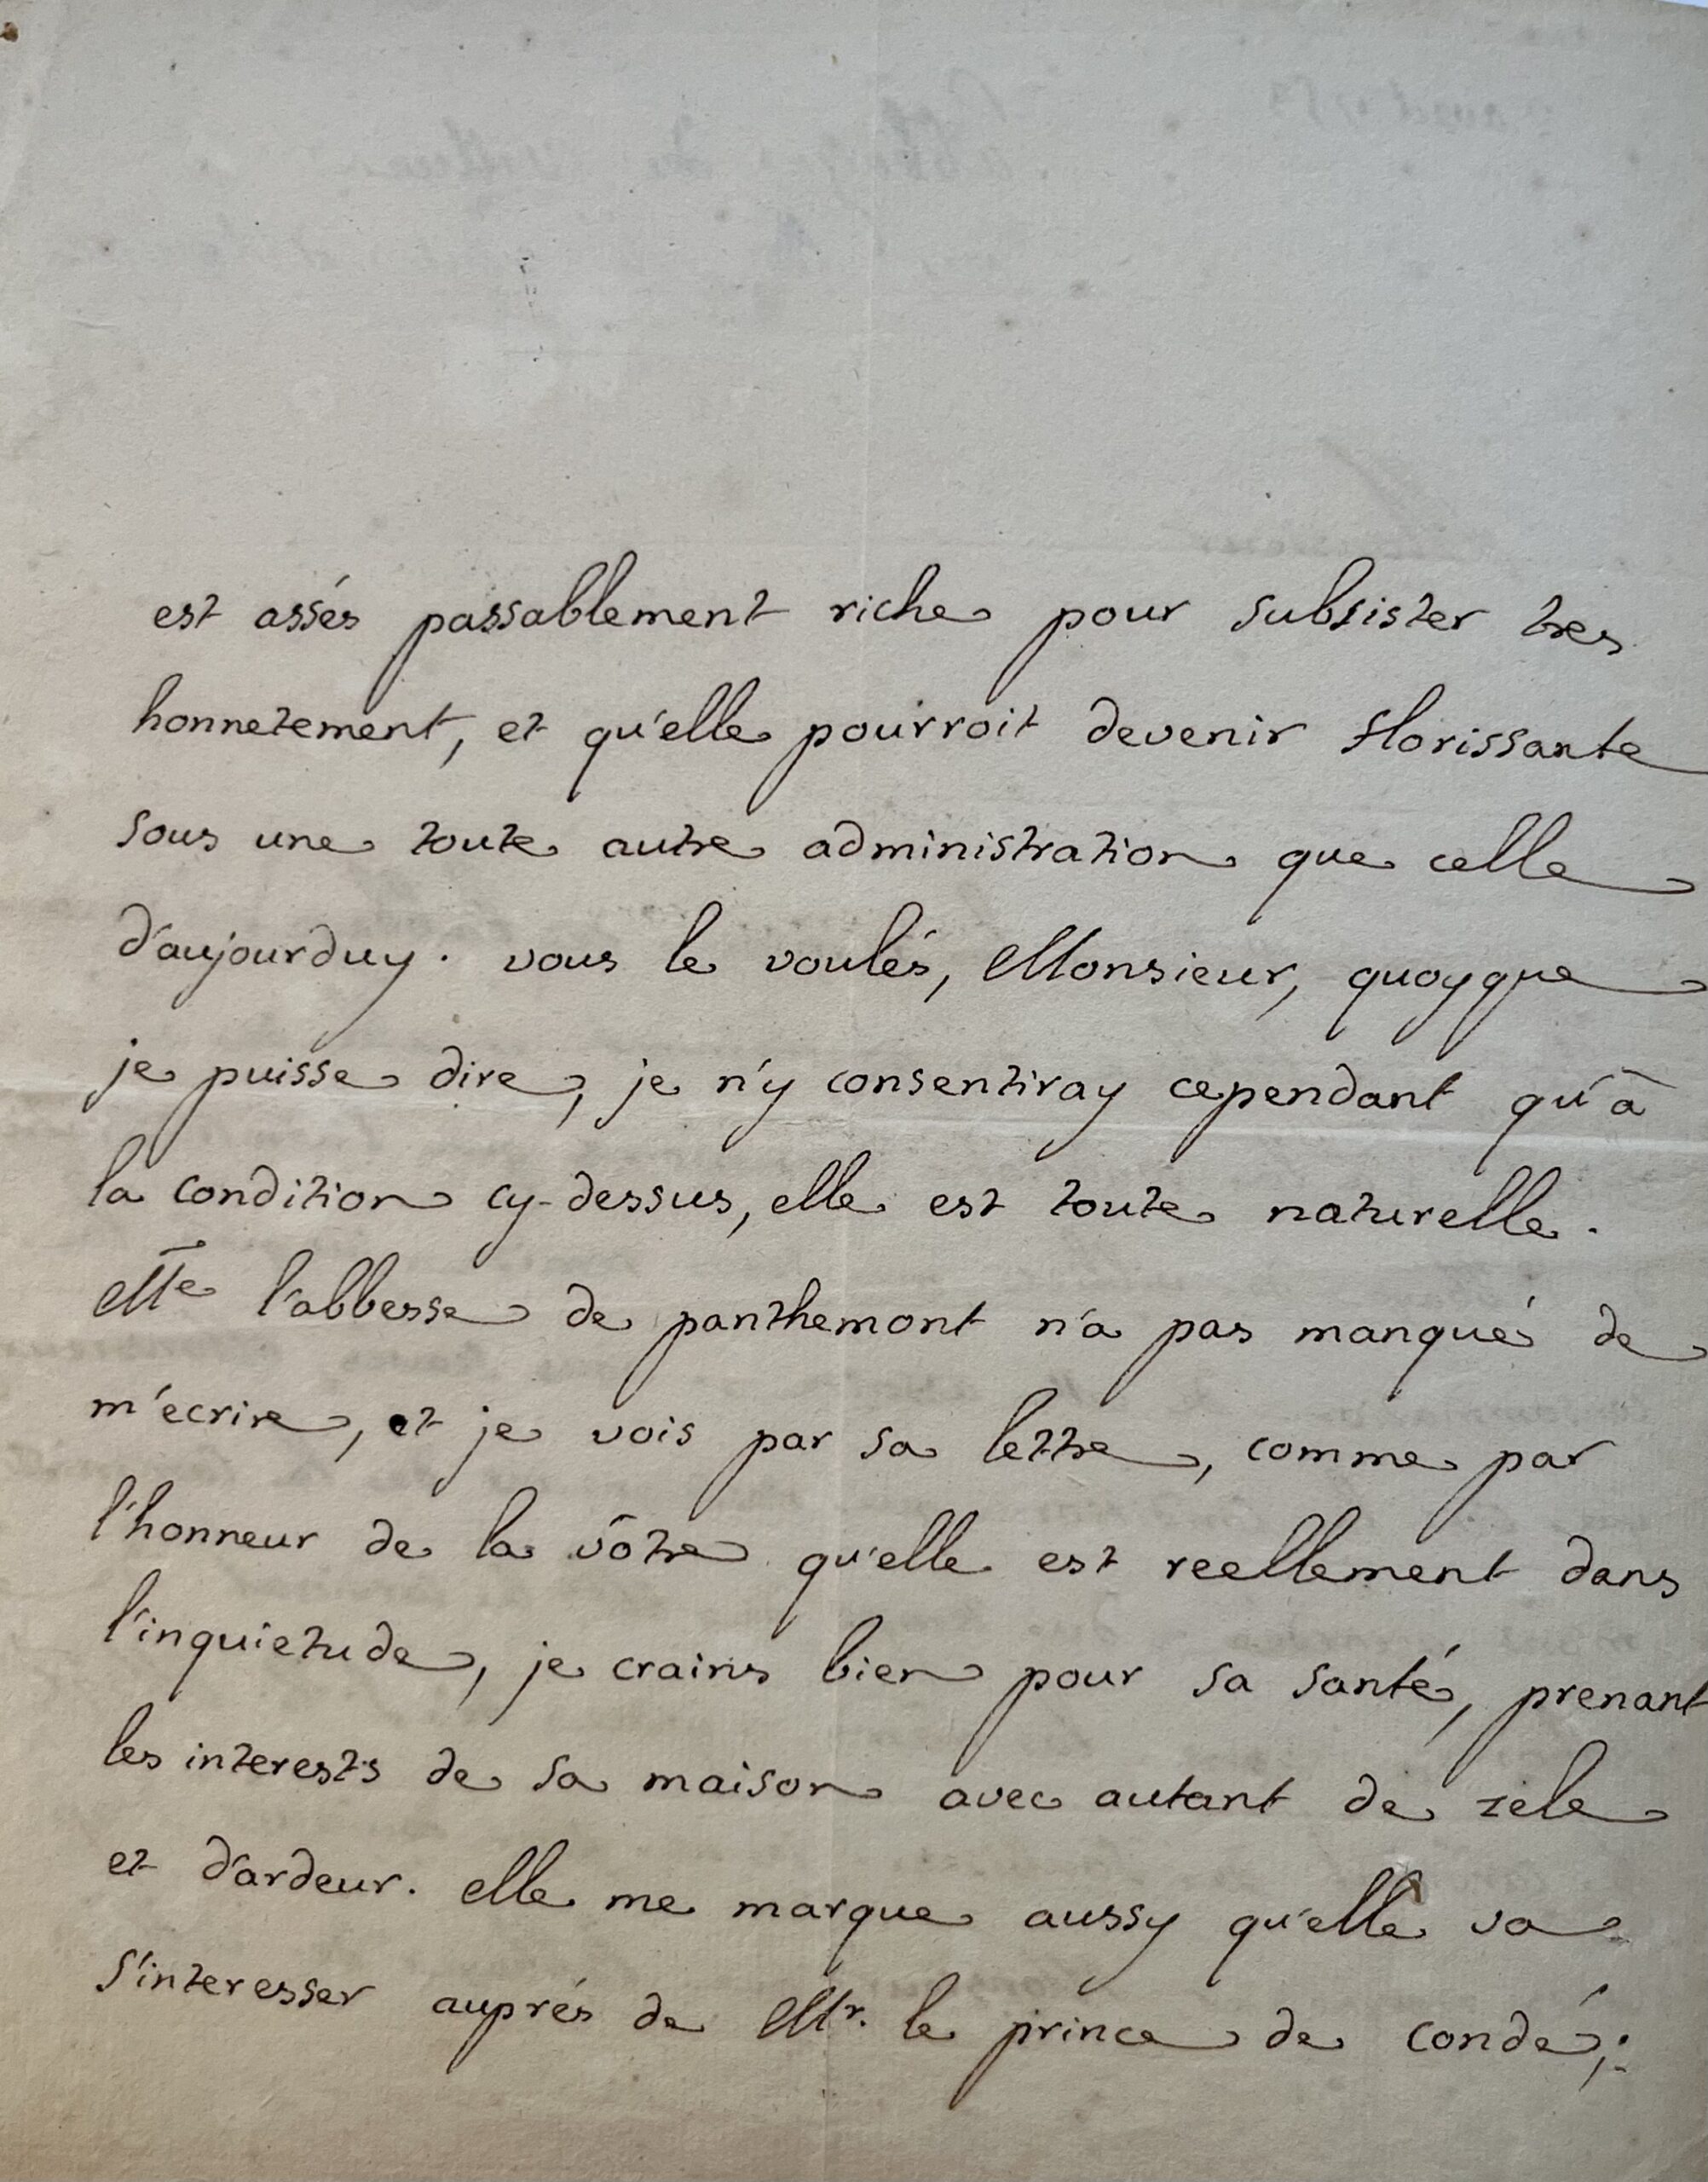 est assés passablement riche pour subsister tres
honnetement, et qu'elle pourroit devenir florissante
sous une toute autre administration que celle
d'aujourduy. vous le voulés, Monsieur, quoyque
je puisse dire, je n'y consentiray cependant qu'à
la condition cy-dessus, elle est toute naturelle.
Me l'abbesse de panthemont n'a pas manqué de
m'ecrire, et je vois par sa lettre, comme par
l'honneur de la vôtre qu'elle est reellement dans
l'inquietude, je crains bien pour sa santé, prenant
les interests de sa maison avec autant de zele
et d'ardeur. elle me marque aussy qu'elle va
s'interesser auprés de Mr. le prince de condé;